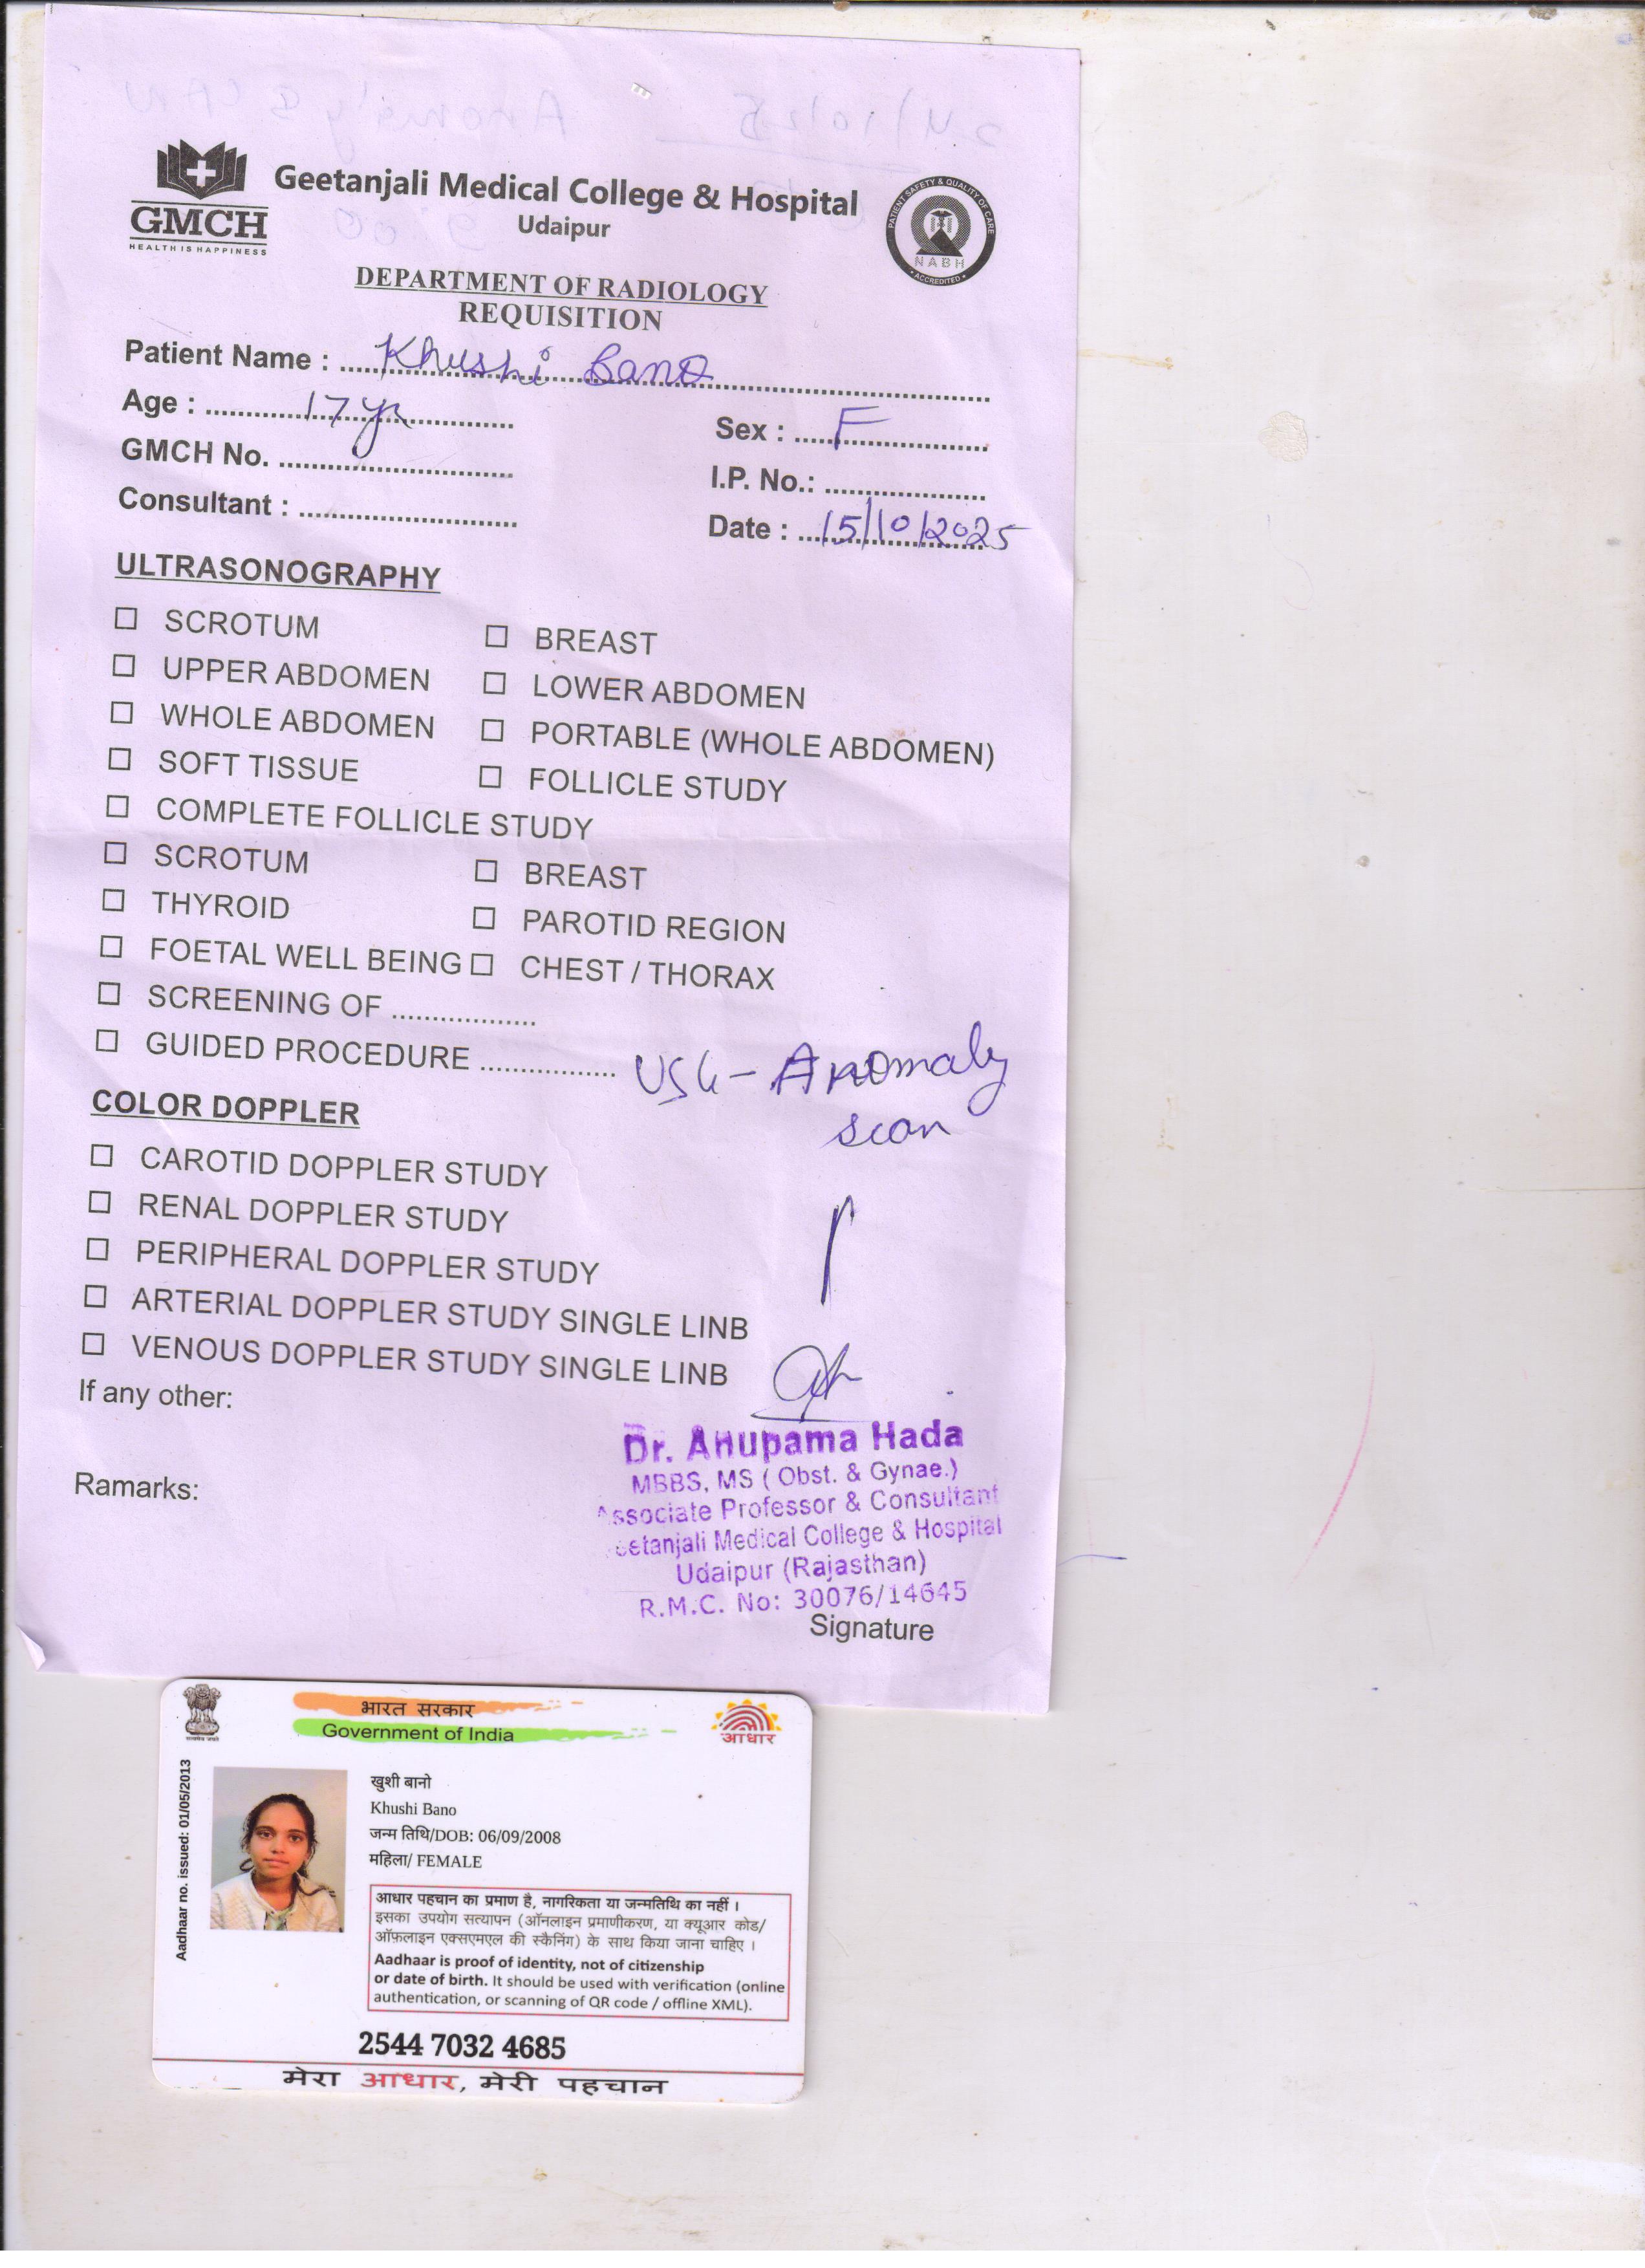 GMCH
HEALTH IS HAPPINESS
Geetanjali Medical College & Hospital
Udaipur
PATIENT SAFETY & QUALITY OF CARE
NABH
• ACCREDITED •
DEPARTMENT OF RADIOLOGY
REQUISITION
Patient Name : Khushi Bano
Age : 17 yr
Sex : F
GMCH No.
I.P. No.:
Consultant :
Date : 15/10/2025
ULTRASONOGRAPHY
SCROTUM
BREAST
UPPER ABDOMEN
LOWER ABDOMEN
WHOLE ABDOMEN
PORTABLE (WHOLE ABDOMEN)
SOFT TISSUE
FOLLICLE STUDY
COMPLETE FOLLICLE STUDY
SCROTUM
BREAST
THYROID
PAROTID REGION
FOETAL WELL BEING
CHEST / THORAX
SCREENING OF
GUIDED PROCEDURE
USG - Anomaly
scan
COLOR DOPPLER
CAROTID DOPPLER STUDY
RENAL DOPPLER STUDY
PERIPHERAL DOPPLER STUDY
ARTERIAL DOPPLER STUDY SINGLE LINB
VENOUS DOPPLER STUDY SINGLE LINB
If any other:
Ramarks:
Dr. Anupama Hada
MBBS, MS ( Obst. & Gynae.)
Associate Professor & Consultant
Geetanjali Medical College & Hospital
Udaipur (Rajasthan)
R.M.C. No: 30076/14645
Signature
भारत सरकार
Government of India
आधार
Aadhaar no. issued: 01/05/2013
खुशी बानो
Khushi Bano
जन्म तिथि/DOB: 06/09/2008
महिला/ FEMALE
आधार पहचान का प्रमाण है, नागरिकता या जन्मतिथि का नहीं ।
इसका उपयोग सत्यापन (ऑनलाइन प्रमाणीकरण, या क्यूआर कोड/
ऑफ़लाइन एक्सएमएल की स्कैनिंग) के साथ किया जाना चाहिए ।
Aadhaar is proof of identity, not of citizenship
or date of birth. It should be used with verification (online
authentication, or scanning of QR code / offline XML).
2544 7032 4685
मेरा आधार, मेरी पहचान